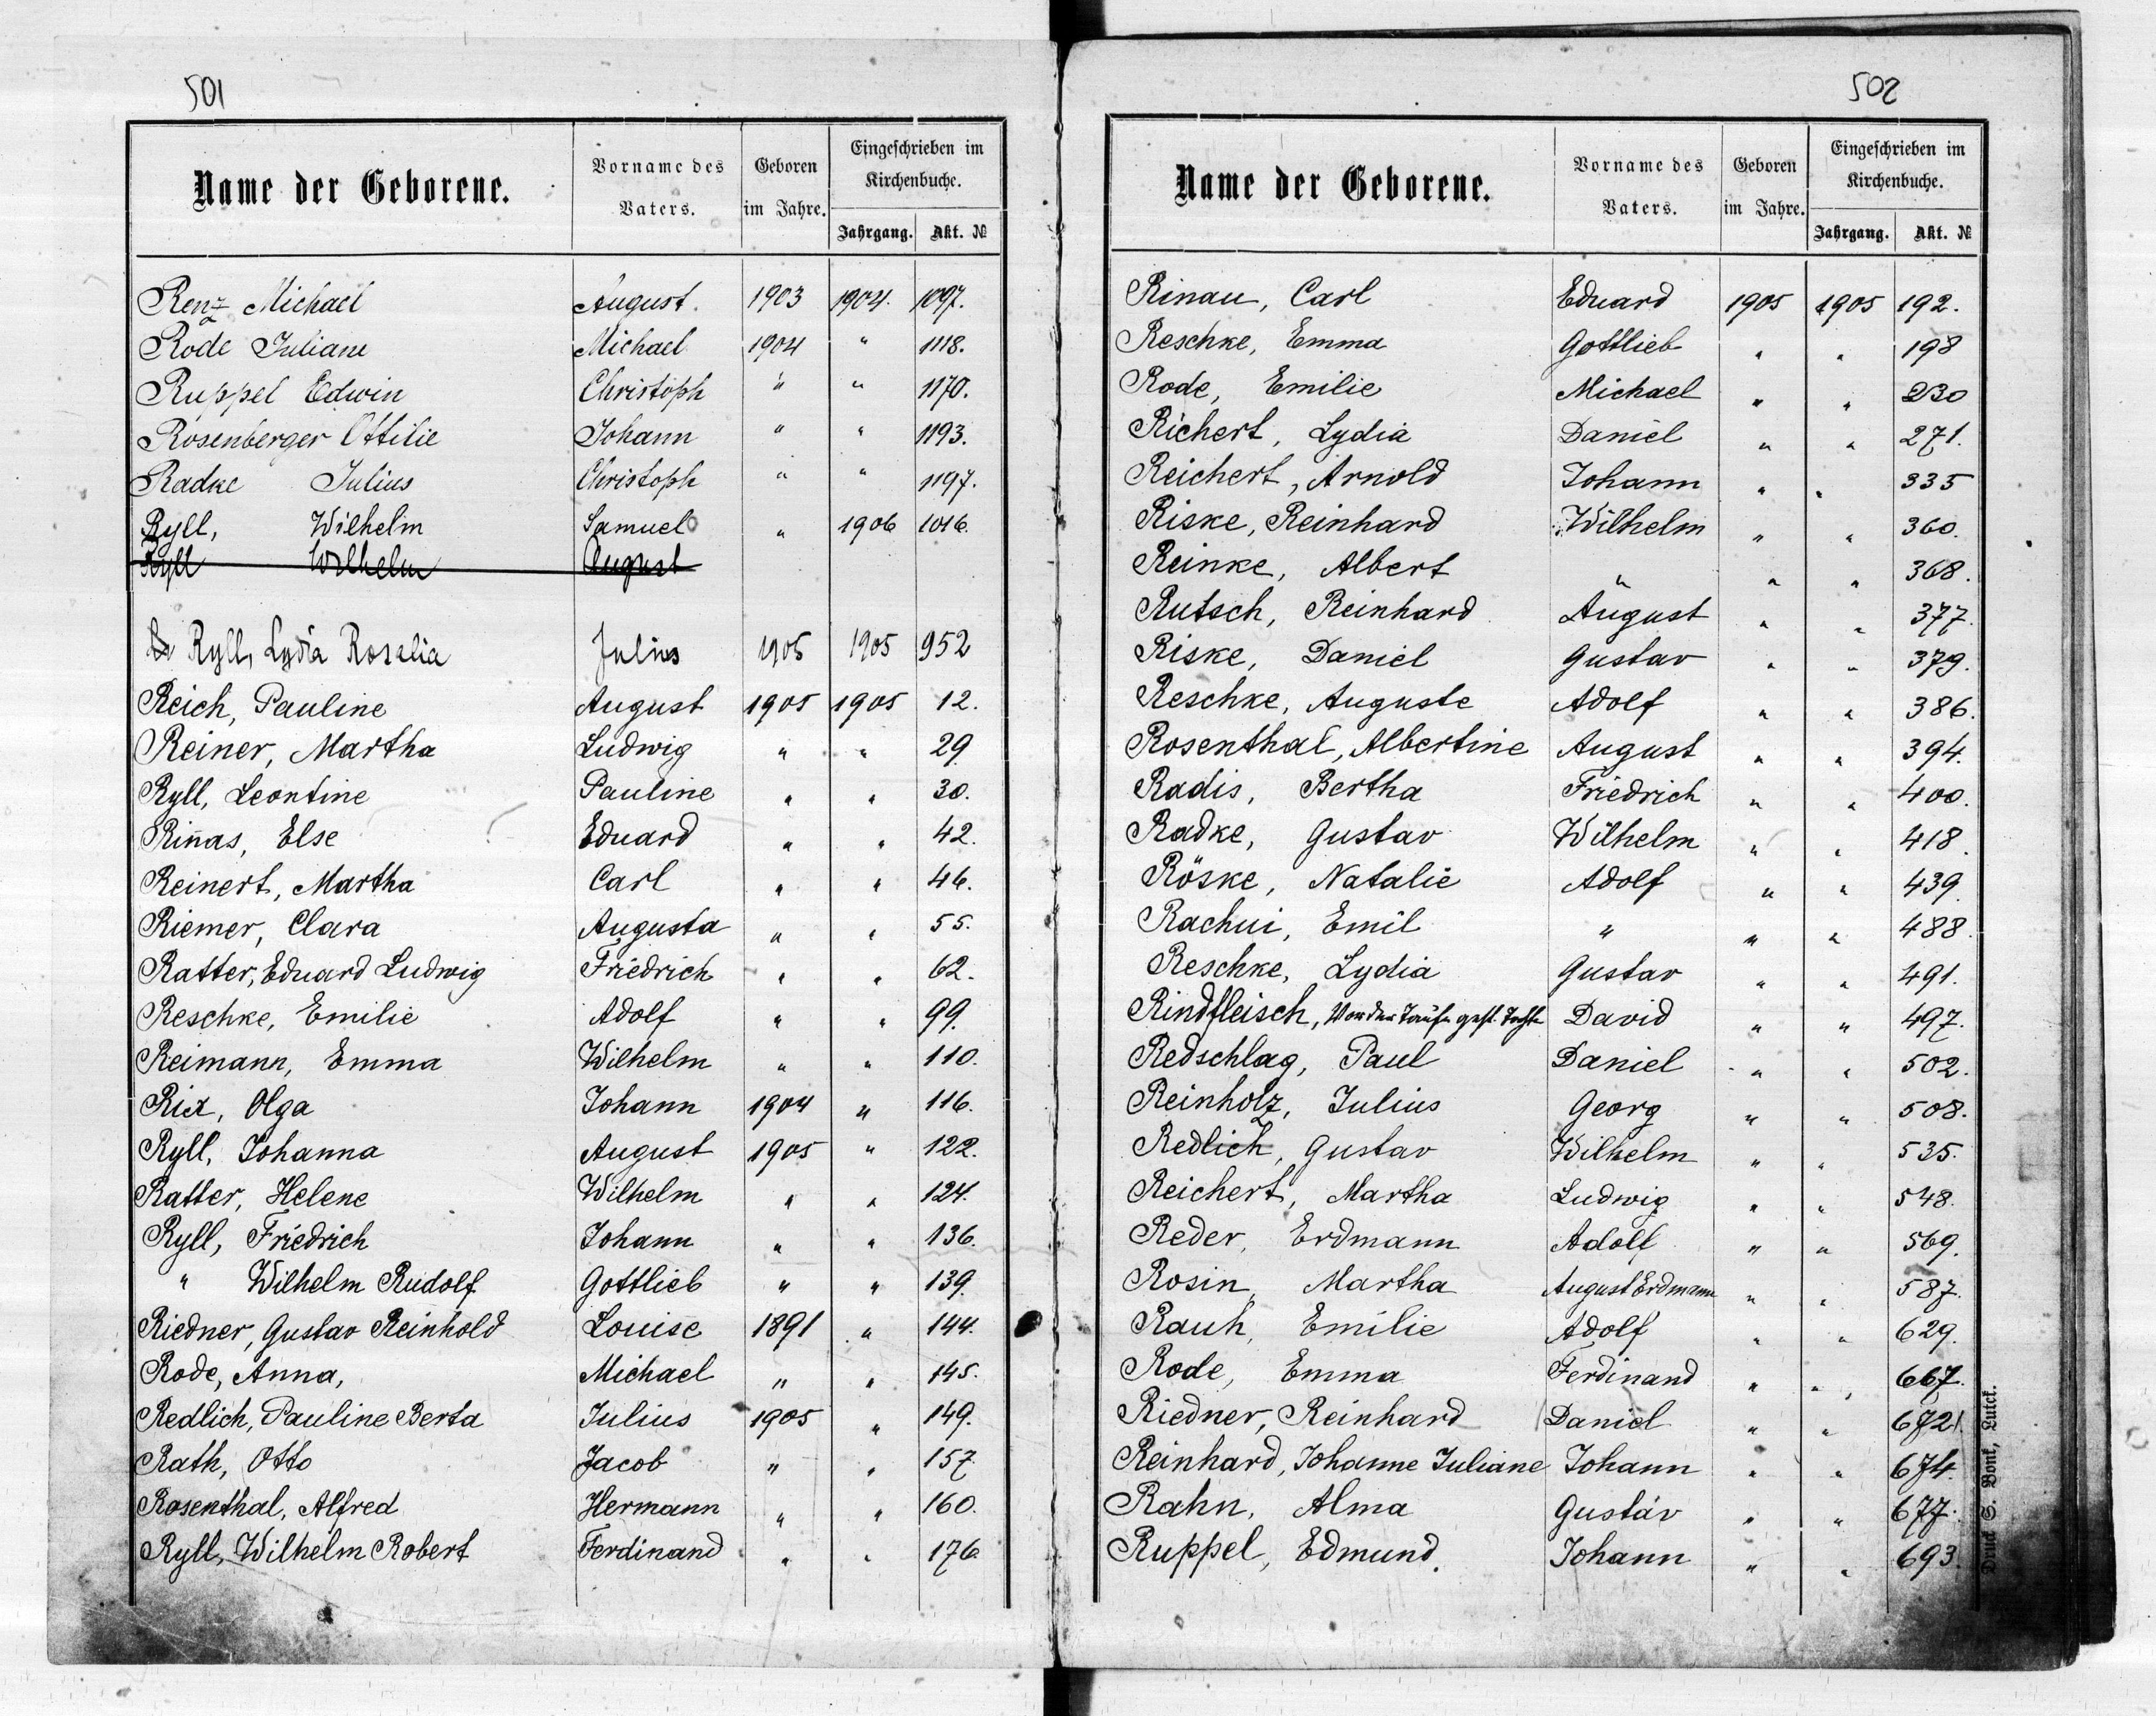 501
Name der Geborene. Vorname des Vaters. Geboren im Jahre. Eingeschrieben im Kirchenbuche. Jahrgang. Akt. №
Renz Michael August. 1903 1904. 1097.
Rode Juliane Michael 1904 " 1118.
Ruppel Edwin Christoph " " 1170.
Rosenberger Ottilie Johann " " 1193.
Radke Julius Christoph " " 1197.
Ryll, Wilhelm Samuel " 1906 1016.
Ryll Wilhelm August
Ryll, Lydia Rosalia Julius 1905 1905 952
Reich, Pauline August 1905 1905 12.
Reiner, Martha Ludwig " " 29
Ryll, Leontine Pauline " " 30.
Rinas, Else Eduard " " 42.
Reinert, Martha Carl " " 46.
Riemer, Clara Augusta " " 55.
Ratter, Eduard Ludwig Friedrich " " 62.
Reschke, Emilie Adolf " " 99.
Reimann, Emma Wilhelm " " 110.
Rix, Olga Johann 1904 " 116.
Ryll, Johanna August 1905 " 122.
Ratter, Helene Wilhelm " " 124.
Ryll, Friedrich Johann " " 136.
" Wilhelm Rudolf Gottlieb " " 139.
Riedner, Gustav Reinhold Louise 1891 " 144.
Rode, Anna, Michael " " 145.
Redlich, Pauline Berta Julius 1905 " 149.
Rath, Otto Jacob " " 157
Rosenthal, Alfred Hermann " " 160.
Ryll, Wilhelm Robert Ferdinand " " 176
502
Name der Geborene. Vorname des Vaters. Geboren im Jahre. Eingeschrieben im Kirchenbuche. Jahrgang. Akt. №
Rinau, Carl Eduard 1905 1905 192.
Reschke, Emma Gottlieb " " 198
Rode, Emilie Michael " " 230
Richert, Lydia Daniel " " 271.
Reichert, Arnold Johann " " 335
Riske, Reinhard Wilhelm " " 360.
Reinke, Albert " " " 368.
Rutsch, Reinhard August " " 377.
Riske, Daniel Gustav " " 379.
Reschke, Auguste Adolf " " 386.
Rosenthal, Albertine August " " 394.
Radis, Bertha Friedrich " " 400.
Radke, Gustav Wilhelm " " 418.
Röske, Natalie Adolf " " 439.
Rachui, Emil " " " 488.
Reschke, Lydia Gustav " " 491.
Rindfleisch, Vor der Taufe gest. David " " 497.
Redschlag, Paul Daniel " " 502.
Reinholz, Julius Georg " " 508.
Redlich, Gustav Wilhelm " " 535.
Reichert, Martha Ludwig " " 548.
Reder, Erdmann Adolf " " 569.
Rosin, Martha August Erdmann " " 587.
Rauh, Emilie Adolf " " 629.
Rode, Emma Ferdinand " " 667.
Riedner, Reinhard Daniel " " 672.
Reinhard, Johanne Juliane Johann " " 674.
Rahn, Alma Gustav " " 677.
Ruppel, Edmund. Johann " " 693.
Druck S. Bont, Lutck.